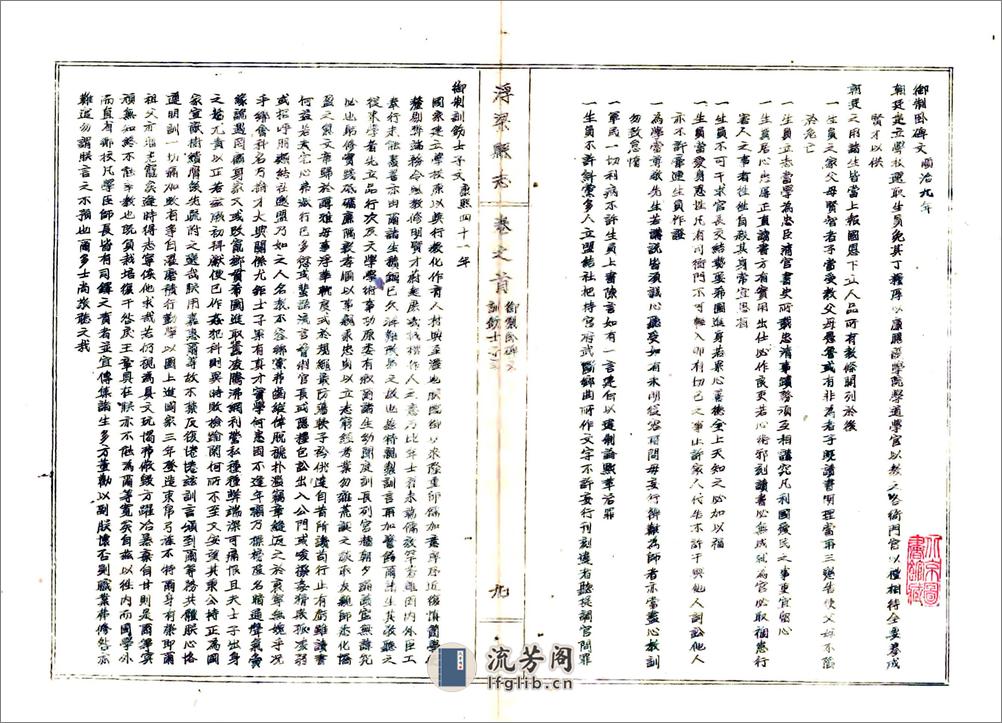 御制卧碑文 順治九年
朝廷建立學校選取生員免其丁糧厚以廩膳設學院學道學官以教之各衙門官以禮相待全要養成
賢才以供
朝廷之用諸生皆當上報國恩下立人品所有教條開列於後
一生員之家父母賢智者子當受教父母愚魯或有非為者子既讀書明理當再三懇告使父母不陷
於危亡
一生員立志當學為忠臣清官書史所載忠清事蹟務須互相講究凡利國愛民之事更宜留心
一生員居心忠厚正直讀書方有實用出仕必作良吏若心術邪刻讀書必無成就為官必取禍患行
害人之事者往往自殺其身常宜思省
一生員不可干求官長交結勢要希圖進身若果心善德全上天知之必加以福
一生員當愛身忍性凡有司衙門不可輕入即有切己之事止許家人代告不許干與他人詞訟他人
亦不許牽連生員作證
一為學當尊敬先生若講說皆須誠心聽受如有未明從容再問毋妄行辯難為師者亦當盡心教訓
勿致怠惰
一軍民一切利病不許生員上書陳言如有一言建白以違制論黜革治罪
一生員不許糾黨多人立盟結社把持官府武斷鄉曲所作文字不許妄行刊刻違者聽提調官問罪
浮梁縣志
卷之首
御製卧碑文
訓飭士子文
九
御制訓飭士子文 康熙四十一年
國家建立學校原以興行教化作育人材典至渥也朕臨御以來隆重師儒加意庠序近復慎簡學使
釐剔弊端務令風教修明賢才蔚起庶幾棫樸作人之意乃比年士習未端儒效罕著雖因內外臣工
奉行未能盡善亦由爾諸生積錮已久猝難改易之故也茲特親製訓言再加警飭爾諸生其敬聽之
從來學者先立品行次及文學學術事功原委有敘爾諸生幼聞庭訓長列宮牆朝夕誦讀寧無講究
必也躬修實踐砥礪廉隅敦孝順以事親秉忠貞以立志窮經考業勿雜荒誕之談取友親師悉化憍
盈之氣文章歸於醇雅毋事浮華軌度式於規繩最防蕩軼子衿佻達自昔所譏苟行止有虧雖讀書
何益若夫宅心弗淑行已多愆或蜚語流言脅制官長或隱糧包訟出入公門或唆撥姦猾欺孤凌弱
或招呼朋類結社邀盟乃如之人名教不容鄉黨弗齒縱倖脫褫扑濫竊章縫返之於衷寧無媿乎況
乎鄉會科名乃掄才大典關係尤鉅士子果有真才實學何患困不逢年顧乃標榜虛名暗通聲氣夤
緣詭遇罔顧身家又或改竄鄉貫希圖進取囂凌騰沸網利營私種種弊端深可痛恨且夫士子出身
之始尤貴以正若茲厥初拜獻便已作姦犯科則異時敗檢踰閑何所不至又安望其秉公持正為國
家宣猷樹績膺後先疏附之選哉朕用嘉惠爾等故不禁反復惓惓茲訓言頒到爾等務共體朕心恪
遵明訓一切痛加改省爭自濯磨積行勤學以圖上進國家三年登造束帛弓旌不特爾身有榮即爾
祖父亦增光寵矣逢時得志寧俟他求哉若仍視為具文玩愒弗儆毀方躍冶暴棄自甘則是爾等冥
頑無知終不能率教也既負栽培復干咎戾王章具在朕亦不能為爾等寬矣自茲以往內而國學外
而直省鄉校凡學臣師長皆有司鐸之責者並宜傳集諸生多方董勸以副朕懷否則職業弗修咎亦
難逭勿謂朕言之不預也爾多士尚敬聽之哉
流芳阁
lfglib.cn